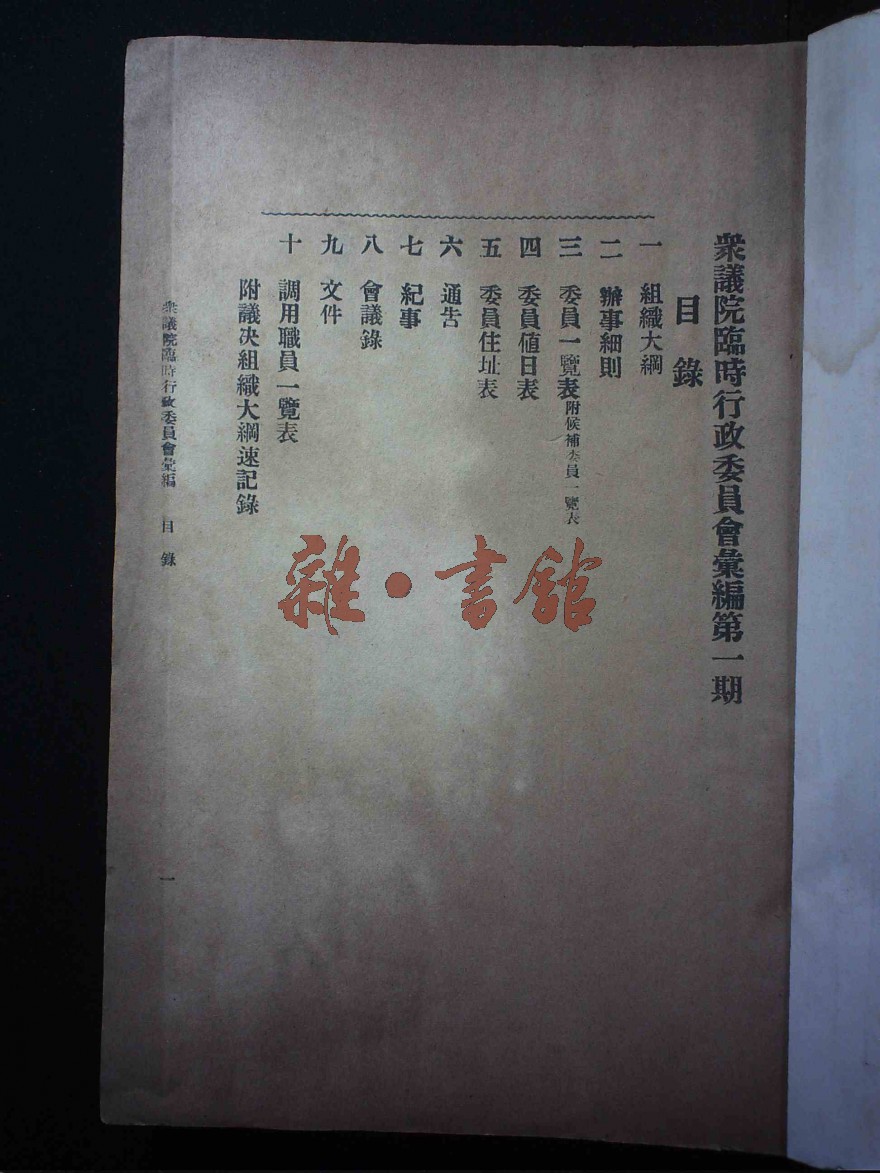 衆議院臨時行政委員會彙編第一期
目錄
一 組織大綱
二 辦事細則
三 委員一覽表附候補委員一覽表
四 委員値日表
五 委員住址表
六 通告
七 紀事
八 會議錄
九 文件
十 調用職員一覽表
附議决組織大綱速記錄
衆議院臨時行政委員會彙編 目錄
一
雜·書館